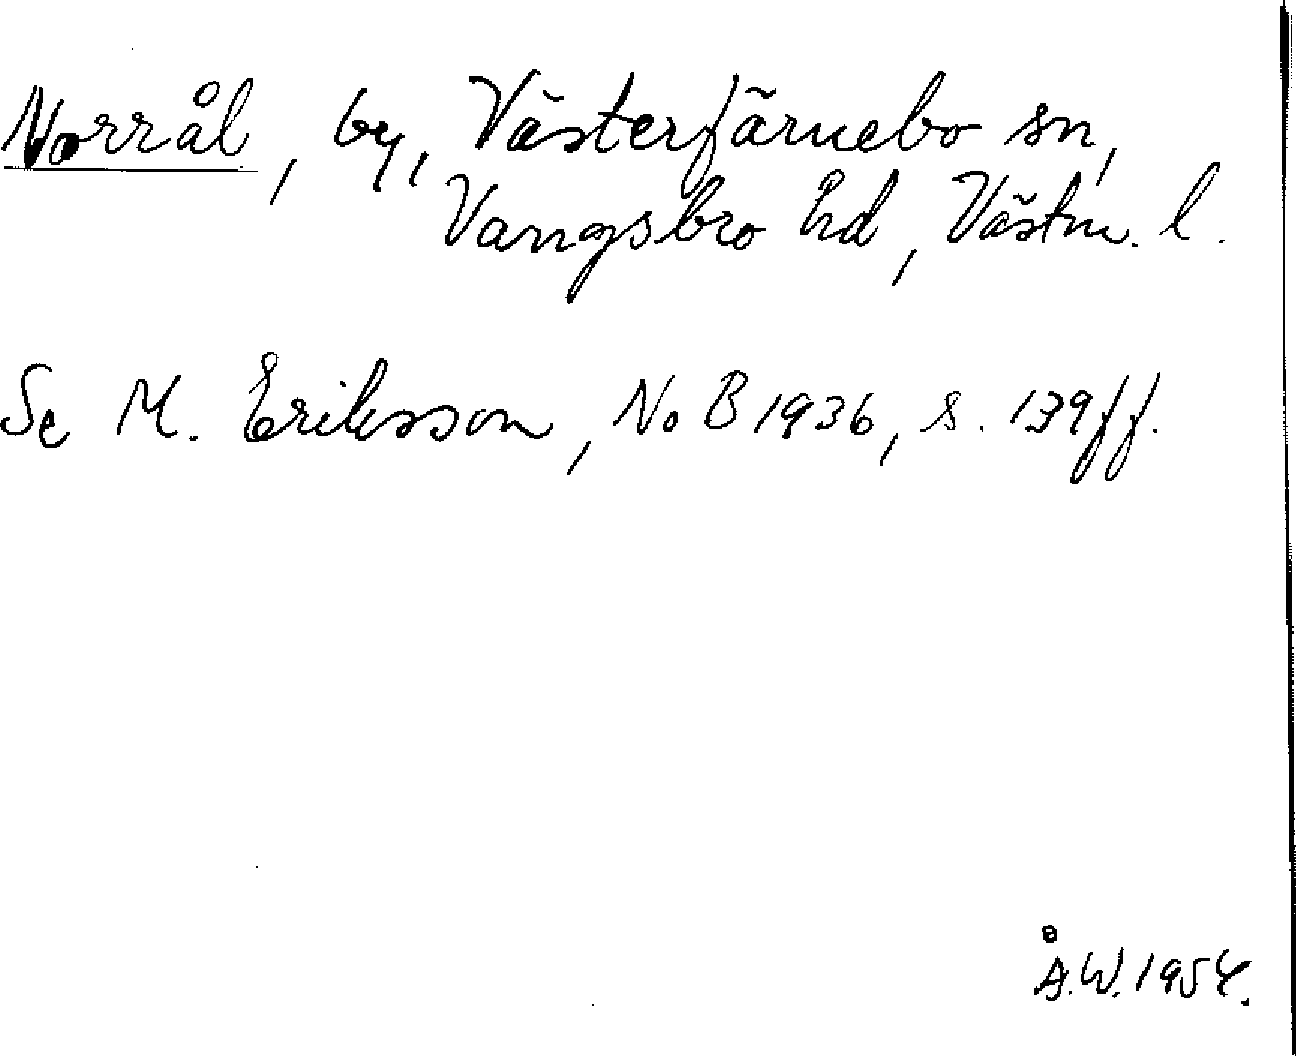 Norrål, by, Västerfärnebo sn,
Vangsbro hd, Västm. l.
Se M. Eriksson, NoB 1936, s. 139ff.
Å.W. 1954.